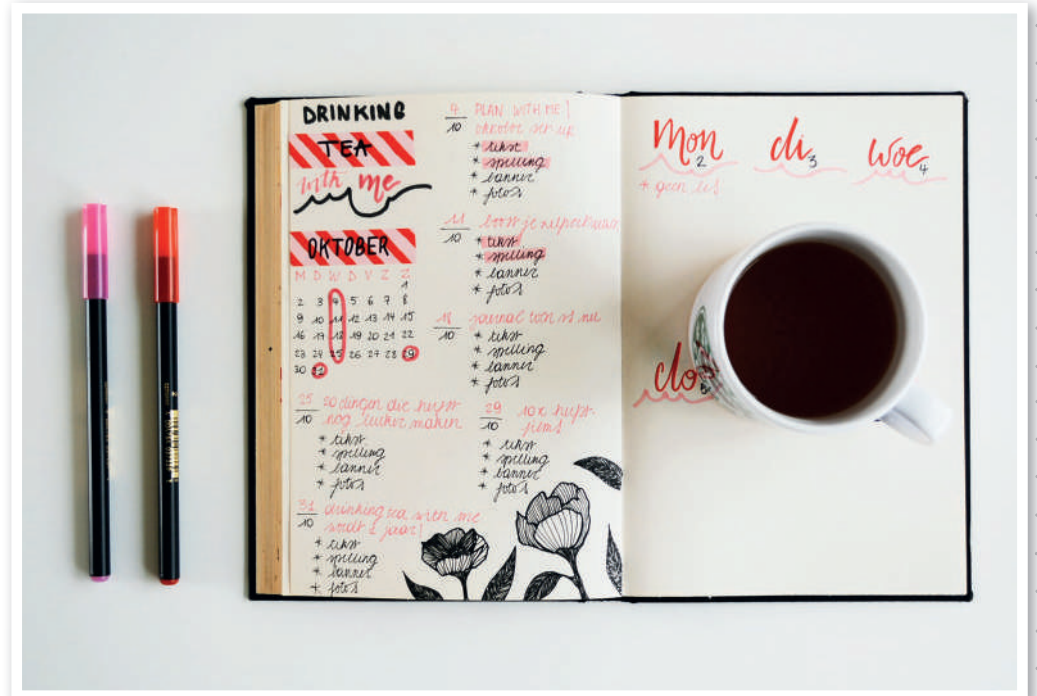 DRINKING
TEA
with me
OKTOBER
M D W D V Z Z
1
2 3 4 5 6 7 8
9 10 11 12 13 14 15
16 17 18 19 20 21 22
23 24 25 26 27 28 29
30 31
4/10 PLAN WITH ME!
oktober set up
* tekst
* spelling
* banner
* foto's
11/10 boost je
* tekst
* spelling
* banner
* foto's
18/10 journal
* tekst
* spelling
* banner
* foto's
25/10 20 dingen die herfst
nog leuker maken
* tekst
* spelling
* banner
* foto's
29/10 10x herfst
* tekst
* spelling
* banner
* foto's
31/10 drinking tea with me
wordt 2 jaar!
* tekst
* spelling
* banner
* foto's
Mon 2
* geen les
di 3
woe 4
do 5